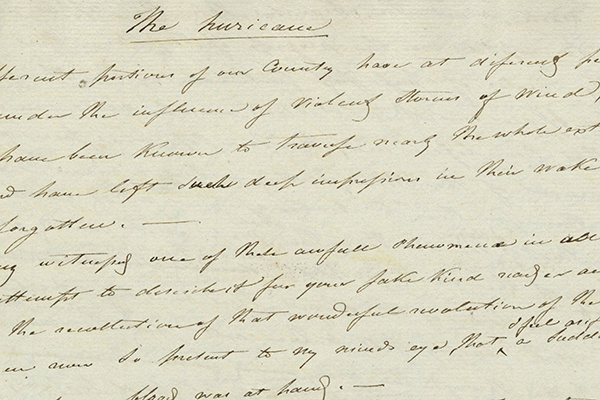 The huricane
fferent portions of our County have at different pe
under the influence of violent storms of wind,
have been known to traverse nearly the whole ext
nd have left such deep impressions in their wake
forgotten. —
ng witnessed one of these awfull phenomena in all
attempt to describe it for your sake kind reader an
The recollection of that wonderful revolution of the
en now so present to my minds eye, that a sudde
blood was at hand. —